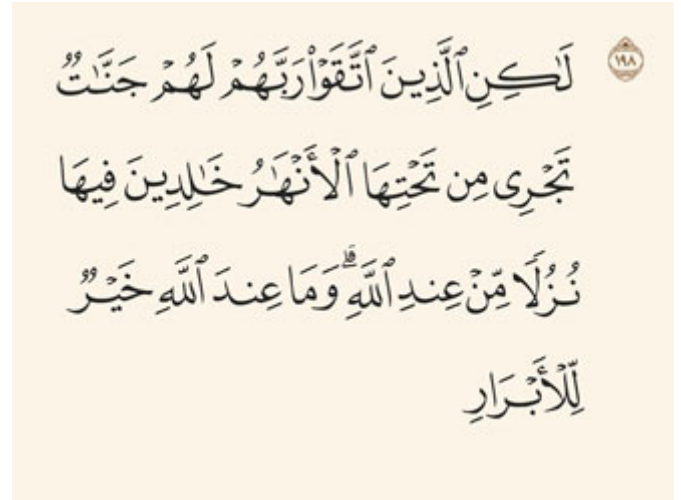 ١٩٨ لَٰكِنِ ٱلَّذِينَ ٱتَّقَوْا۟ رَبَّهُمْ لَهُمْ جَنَّٰتٌ
تَجْرِى مِن تَحْتِهَا ٱلْأَنْهَٰرُ خَٰلِدِينَ فِيهَا
نُزُلًا مِّنْ عِندِ ٱللَّهِ ۗ وَمَا عِندَ ٱللَّهِ خَيْرٌ
لِّلْأَبْرَارِ